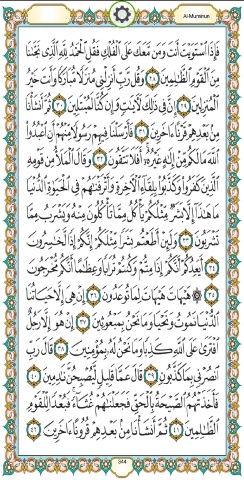 Al-Muminun
فَإِذَا ٱسْتَوَيْتَ أَنتَ وَمَن مَّعَكَ عَلَى ٱلْفُلْكِ فَقُلِ ٱلْحَمْدُ لِلَّهِ ٱلَّذِى نَجَّىٰنَا
مِنَ ٱلْقَوْمِ ٱلظَّٰلِمِينَ ٢٨ وَقُل رَّبِّ أَنزِلْنِى مُنزَلًا مُّبَارَكًا وَأَنتَ خَيْرُ
ٱلْمُنزِلِينَ ٢٩ إِنَّ فِى ذَٰلِكَ لَءَايَٰتٍ وَإِن كُنَّا لَمُبْتَلِينَ ٣٠ ثُمَّ أَنشَأْنَا
مِنۢ بَعْدِهِمْ قَرْنًا ءَاخَرِينَ ٣١ فَأَرْسَلْنَا فِيهِمْ رَسُولًا مِّنْهُمْ أَنِ ٱعْبُدُوا۟
ٱللَّهَ مَا لَكُم مِّنْ إِلَٰهٍ غَيْرُهُۥٓ أَفَلَا تَتَّقُونَ ٣٢ وَقَالَ ٱلْمَلَأُ مِن قَوْمِهِ
ٱلَّذِينَ كَفَرُوا۟ وَكَذَّبُوا۟ بِلِقَآءِ ٱلْءَاخِرَةِ وَأَتْرَفْنَٰهُمْ فِى ٱلْحَيَوٰةِ ٱلدُّنْيَا
مَا هَٰذَآ إِلَّا بَشَرٌ مِّثْلُكُمْ يَأْكُلُ مِمَّا تَأْكُلُونَ مِنْهُ وَيَشْرَبُ مِمَّا
تَشْرَبُونَ ٣٣ وَلَئِنْ أَطَعْتُم بَشَرًا مِّثْلَكُمْ إِنَّكُمْ إِذًا لَّخَٰسِرُونَ
٣٤ أَيَعِدُكُمْ أَنَّكُمْ إِذَا مِتُّمْ وَكُنتُمْ تُرَابًا وَعِظَٰمًا أَنَّكُم مُّخْرَجُونَ
٣٥ هَيْهَاتَ هَيْهَاتَ لِمَا تُوعَدُونَ ٣٦ إِنْ هِىَ إِلَّا حَيَاتُنَا
ٱلدُّنْيَا نَمُوتُ وَنَحْيَا وَمَا نَحْنُ بِمَبْعُوثِينَ ٣٧ إِنْ هُوَ إِلَّا رَجُلٌ
ٱفْتَرَىٰ عَلَى ٱللَّهِ كَذِبًا وَمَا نَحْنُ لَهُۥ بِمُؤْمِنِينَ ٣٨ قَالَ رَبِّ
ٱنصُرْنِى بِمَا كَذَّبُونِ ٣٩ قَالَ عَمَّا قَلِيلٍ لَّيُصْبِحُنَّ نَٰدِمِينَ ٤٠
فَأَخَذَتْهُمُ ٱلصَّيْحَةُ بِٱلْحَقِّ فَجَعَلْنَٰهُمْ غُثَآءً فَبُعْدًا لِّلْقَوْمِ
ٱلظَّٰلِمِينَ ٤١ ثُمَّ أَنشَأْنَا مِنۢ بَعْدِهِمْ قُرُونًا ءَاخَرِينَ ٤٢
344